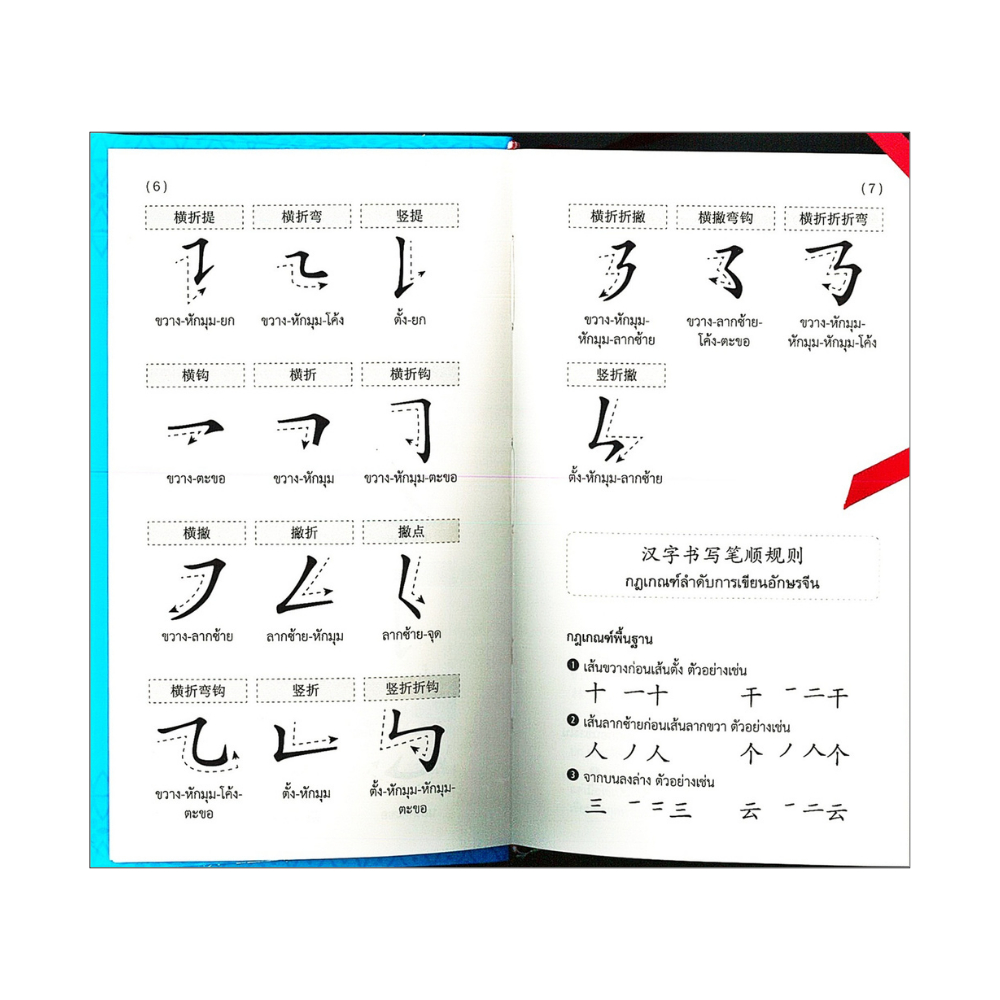 (6)
横折提 横折弯 竖提
ขวาง-หักมุม-ยก ขวาง-หักมุม-โค้ง ตั้ง-ยก
横钩 横折 横折钩
ขวาง-ตะขอ ขวาง-หักมุม ขวาง-หักมุม-ตะขอ
横撇 撇折 撇点
ขวาง-ลากซ้าย ลากซ้าย-หักมุม ลากซ้าย-จุด
横折弯钩 竖折 竖折折钩
ขวาง-หักมุม-โค้ง-
ตะขอ
ตั้ง-หักมุม
ตั้ง-หักมุม-หักมุม-
ตะขอ
(7)
横折折撇 横撇弯钩 横折折折弯
ขวาง-หักมุม-
หักมุม-ลากซ้าย
ขวาง-ลากซ้าย-
โค้ง-ตะขอ
ขวาง-หักมุม-
หักมุม-หักมุม-โค้ง
竖折撇
ตั้ง-หักมุม-ลากซ้าย
汉字书写笔顺规则
กฎเกณฑ์ลำดับการเขียนอักษรจีน
กฎเกณฑ์พื้นฐาน
❶ เส้นขวางก่อนเส้นตั้ง ตัวอย่างเช่น
十 一十 干 一二干
❷ เส้นลากซ้ายก่อนเส้นลากขวา ตัวอย่างเช่น
人 丿人 个 丿人个
❸ จากบนลงล่าง ตัวอย่างเช่น
三 一二三 云 一二云